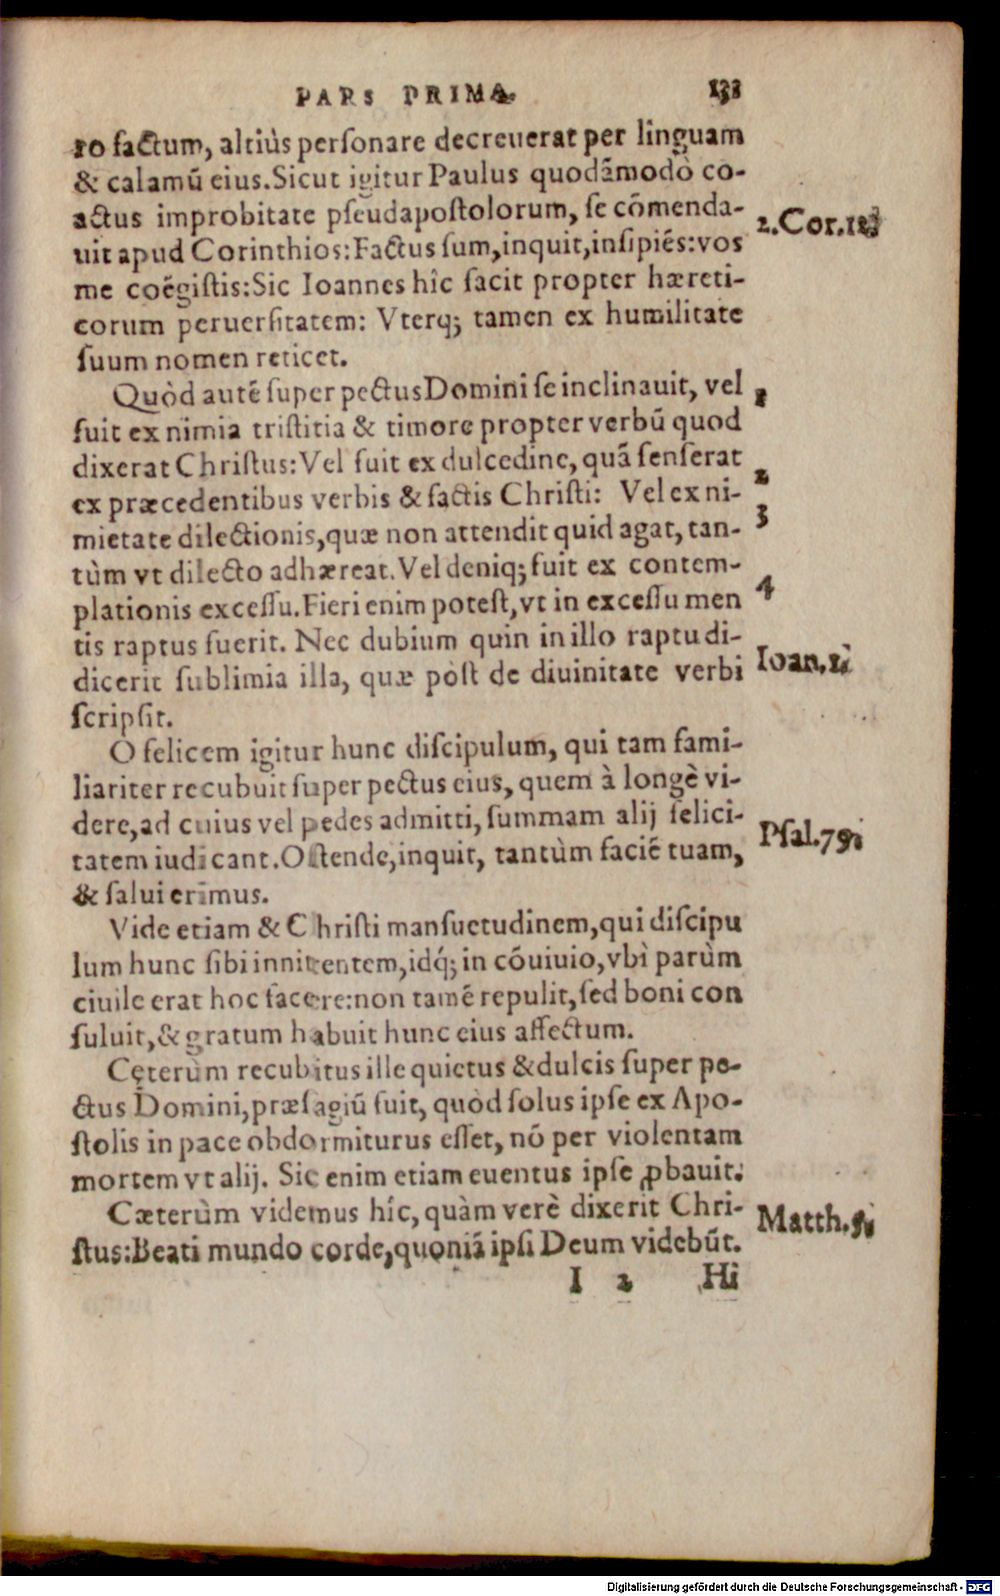 PARS PRIMA. 131
ro factum, altiùs personare decreuerat per linguam
& calamũ eius. Sicut igitur Paulus quodãmodò co-
actus improbitate pseudapostolorum, se cõmenda-
uit apud Corinthios: Factus sum, inquit, insipiẽs: vos
me coẽgistis: Sic Ioannes hîc facit propter hæreti-
corum peruersitatem: Vterq; tamen ex humilitate
suum nomen reticet.
2. Cor. 12.
Quòd autẽ super pectus Domini se inclinauit, vel
fuit ex nimia tristitia & timore propter verbũ quod
dixerat Christus: Vel fuit ex dulcedine, quã senserat
ex præcedentibus verbis & factis Christi: Vel ex ni-
mietate dilectionis, quæ non attendit quid agat, tan-
tùm vt dilecto adhæreat. Vel deniq; fuit ex contem-
plationis excessu. Fieri enim potest, vt in excessu men
tis raptus fuerit. Nec dubium quin in illo raptu di-
dicerit sublimia illa, quæ pòst de diuinitate verbi
scripsit.
1
2
3
4
Ioan. 1.
O felicem igitur hunc discipulum, qui tam fami-
liariter recubuit super pectus eius, quem à longè vi-
dere, ad cuius vel pedes admitti, summam alij felici-
tatem iudicant. Ostende, inquit, tantùm faciẽ tuam,
& salui erimus.
Psal. 79.
Vide etiam & Christi mansuetudinem, qui discipu
lum hunc sibi innitentem, idq́; in cõuiuio, vbì parùm
ciuile erat hoc facere: non tamẽ repulit, sed boni con
suluit, & gratum habuit hunc eius affectum.
Cęterùm recubitus ille quietus & dulcis super pe-
ctus Domini, præsagiũ fuit, quòd solus ipse ex Apo-
stolis in pace obdormiturus esset, nõ per violentam
mortem vt alij. Sic enim etiam euentus ipse ꝓbauit.
Cæterùm videmus híc, quàm verè dixerit Chri-
stus: Beati mundo corde, quoniã ipsi Deum videbũt.
Matth. 5.
I 2 Hi
Digitalisierung gefördert durch die Deutsche Forschungsgemeinschaft - DFG